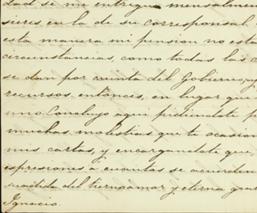 dad se me entregue mensualmen
sieres en la de su corresponsal.
esta manera mi pension no esta
circunstancias, como todas las
se dan por cuenta del Gobierno, y
recursos, entónces, en lugar que
uno. Concluyo aqui pidiendote p
muchas molestias que te ocasion
mis cartas, y encargandote que
espresiones a cuantos se acuerden
del tierno amor y eterna gra
Ignacio.